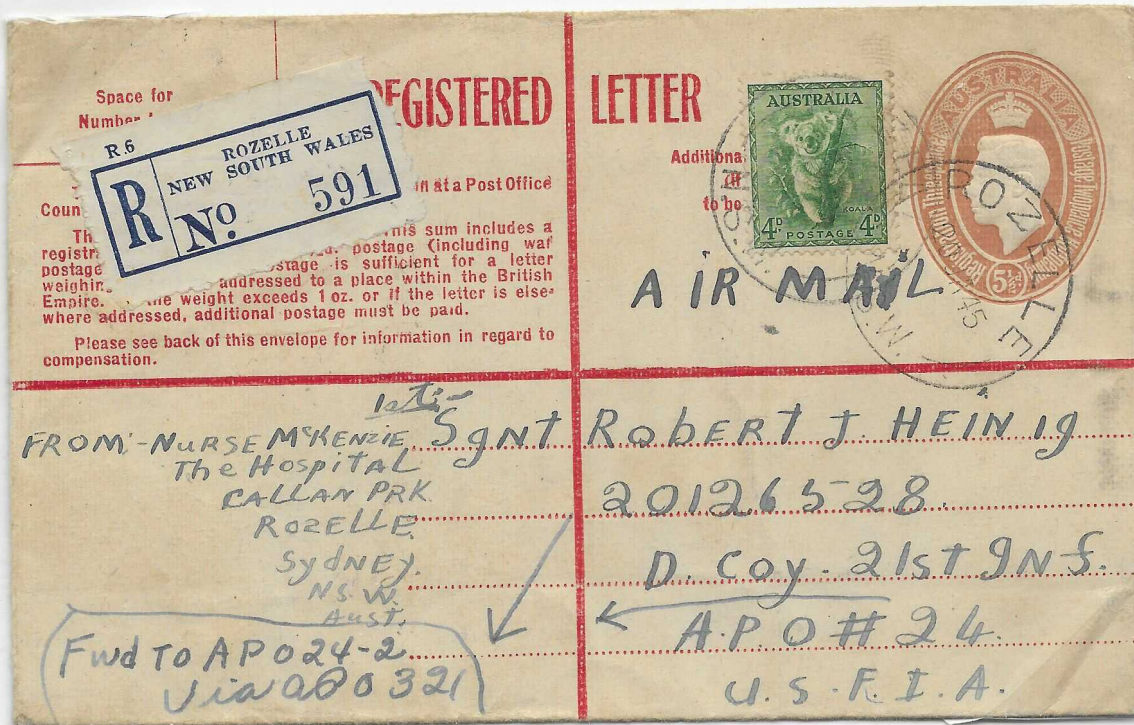 Space for
Number
REGISTERED LETTER
R 6
ROZELLE
NEW SOUTH WALES
R No. 591
in at a Post Office
Coun
Th This sum includes a
registr postage (including war
postage postage is sufficient for a letter
weighin addressed to a place within the British
Empire. the weight exceeds 1 oz. or if the letter is else-
where addressed, additional postage must be paid.
Please see back of this envelope for information in regard to
compensation.
Additiona
(if
to be
AUSTRALIA
KOALA
4D. POSTAGE 4D.
AUSTRALIA
5½d
ROZELLE
45
N.S.W
AIR MAIL
1st:-
FROM:- NURSE McKENZIE
The HOSPITAL
CALLAN PRK
ROZELLE
SYdNEY.
N.S.W.
Aust.
Sgnt Robert J HEINig
20126528.
D. Coy. 21st Inf.
A.P.O # 24.
U.S.F.I.A.
Fwd TO APO 24-2
Via APO 321